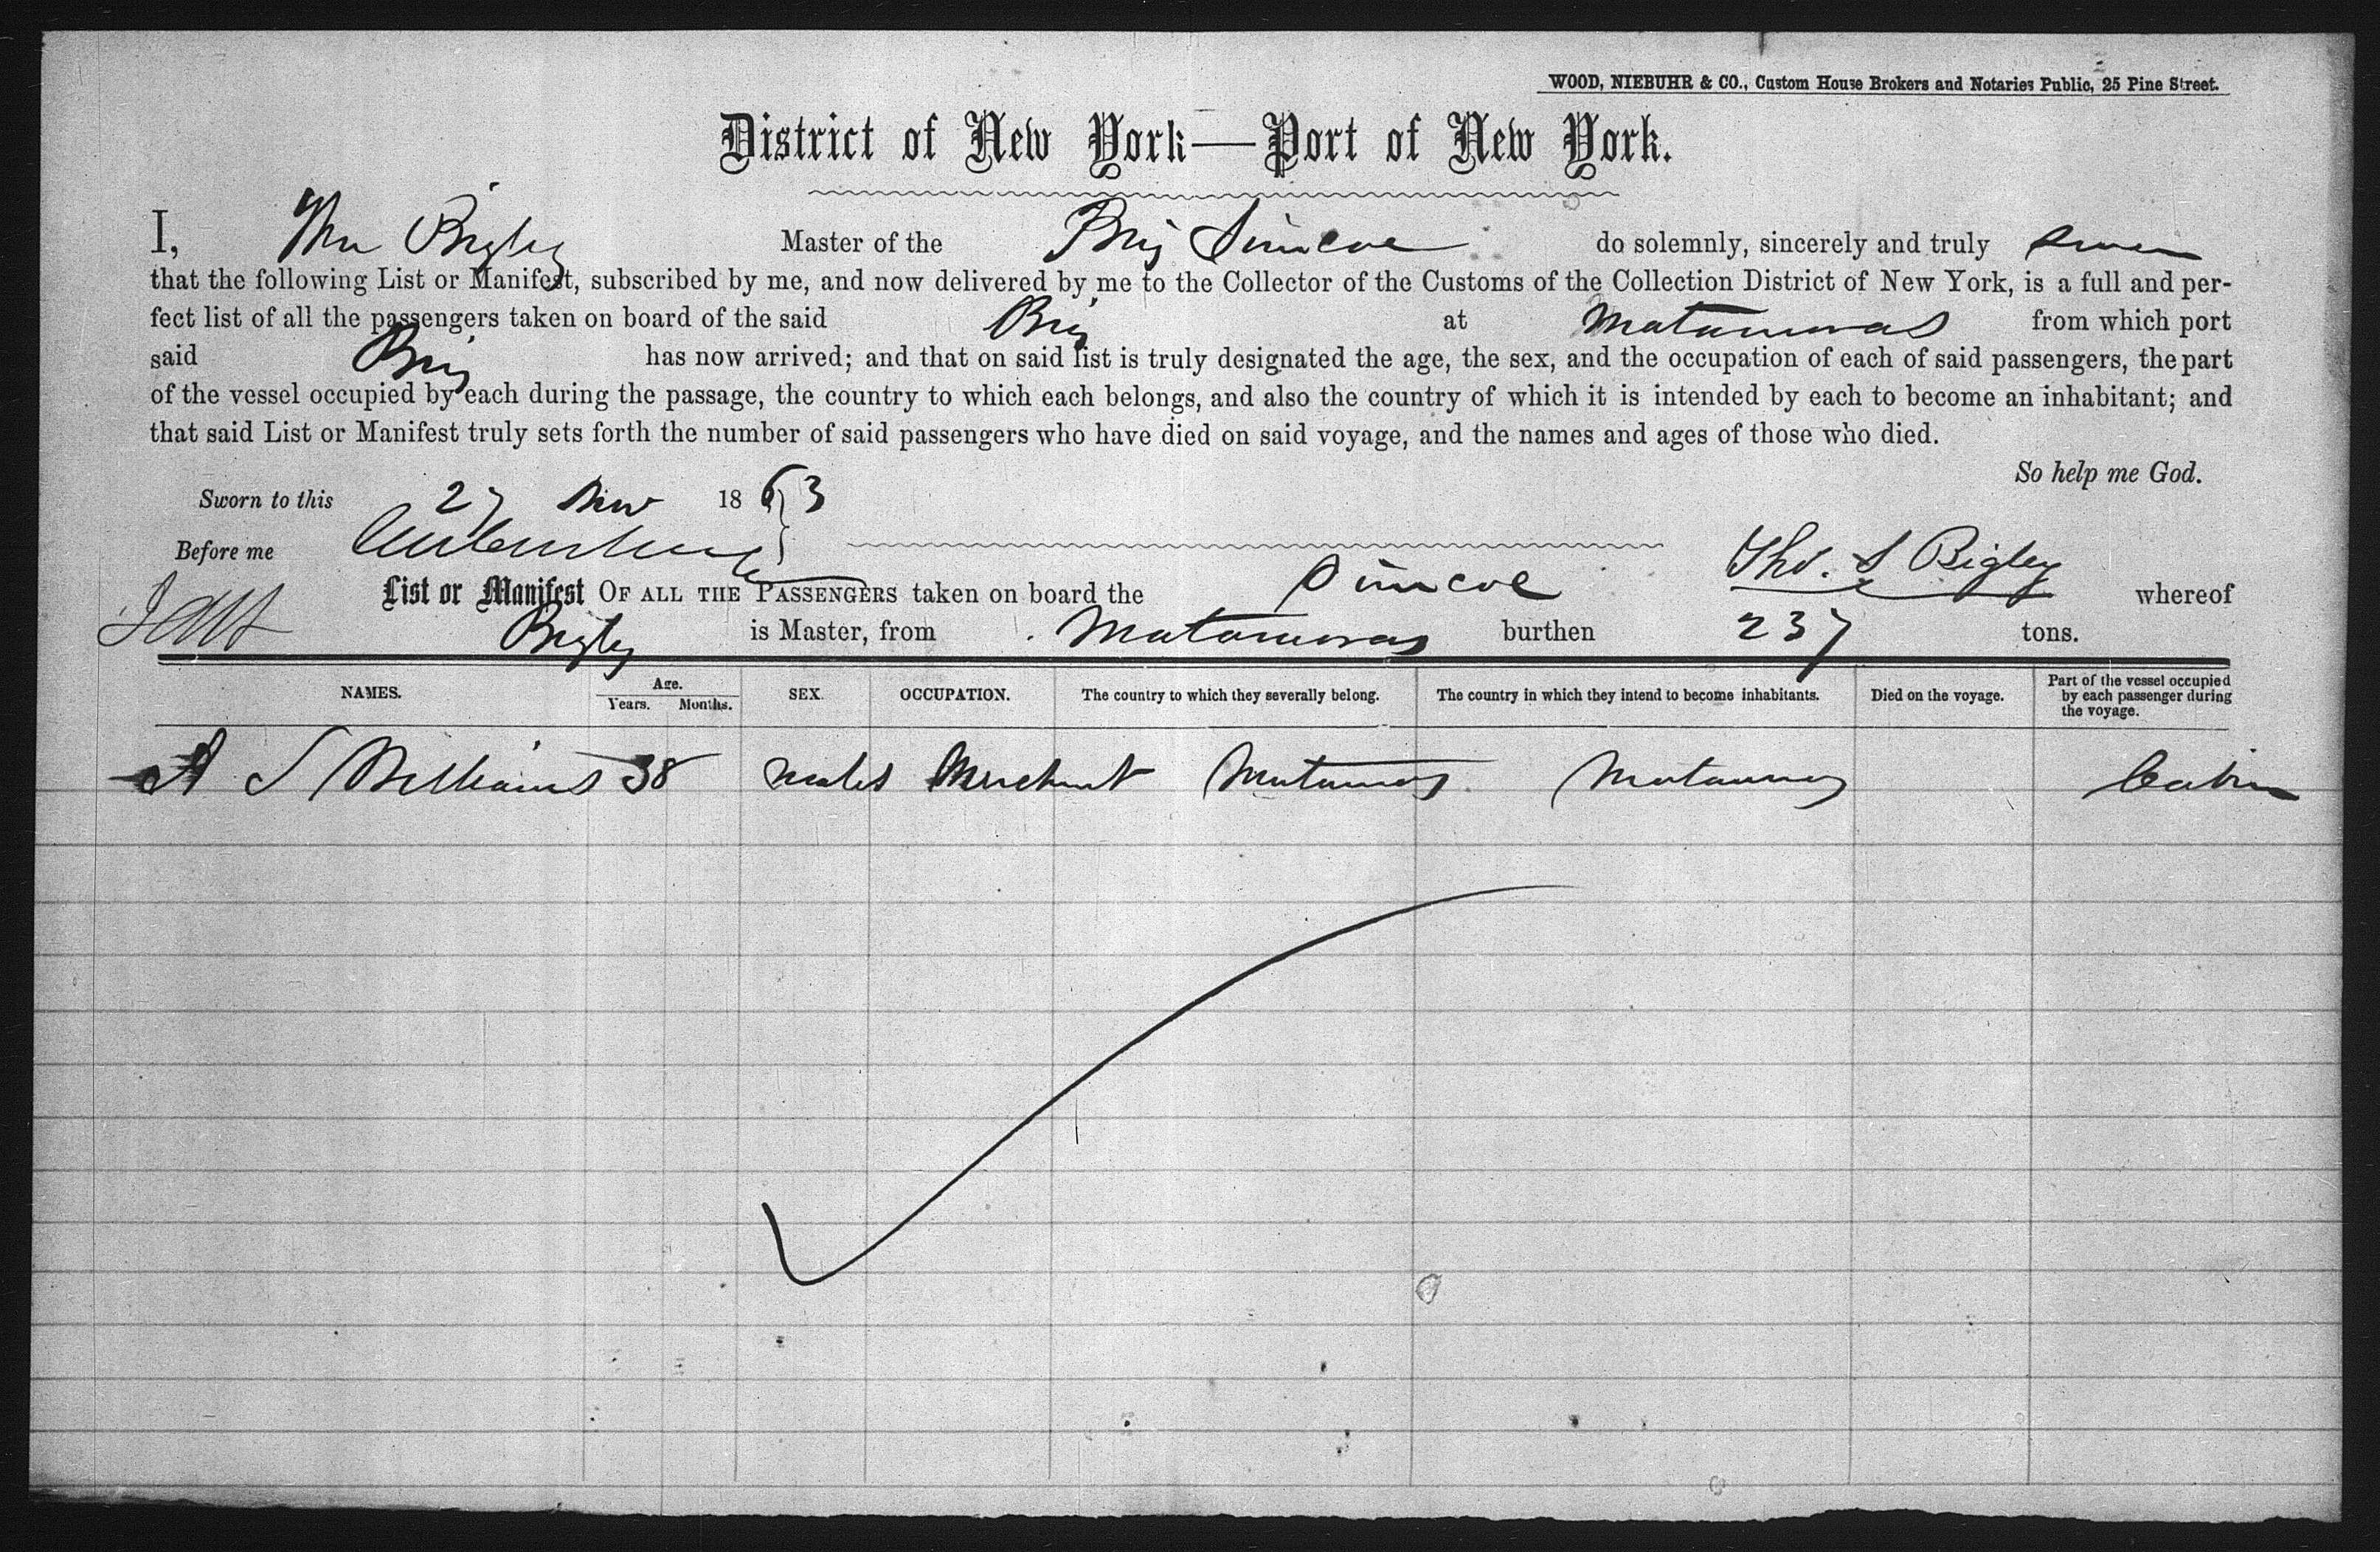 WOOD, NIEBUHR & CO., Custom House Brokers and Notaries Public, 25 Pine Street.
District of New York—Port of New York.
I, Bigley Master of the Brig Simcoe do solemnly, sincerely and truly swear
that the following List or Manifest, subscribed by me, and now delivered by me to the Collector of the Customs of the Collection District of New York, is a full and per-
fect list of all the passengers taken on board of the said Brig at Matamoras from which port
said Brig has now arrived; and that on said list is truly designated the age, the sex, and the occupation of each of said passengers, the part
of the vessel occupied by each during the passage, the country to which each belongs, and also the country of which it is intended by each to become an inhabitant; and
that said List or Manifest truly sets forth the number of said passengers who have died on said voyage, and the names and ages of those who died.
So help me God.
Sworn to this 27 Nov 1863
Before me
Tho. S Bigley
List or Manifest OF ALL THE PASSENGERS taken on board the Simcoe whereof
Bigley is Master, from Matamoras burthen 237 tons.
NAMES. Age. Years. Months. SEX. OCCUPATION. The country to which they severally belong. The country in which they intend to become inhabitants. Died on the voyage. Part of the vessel occupied by each passenger during the voyage.
A S Williams 38 male Merchant Matamoras Matamoras Cabin